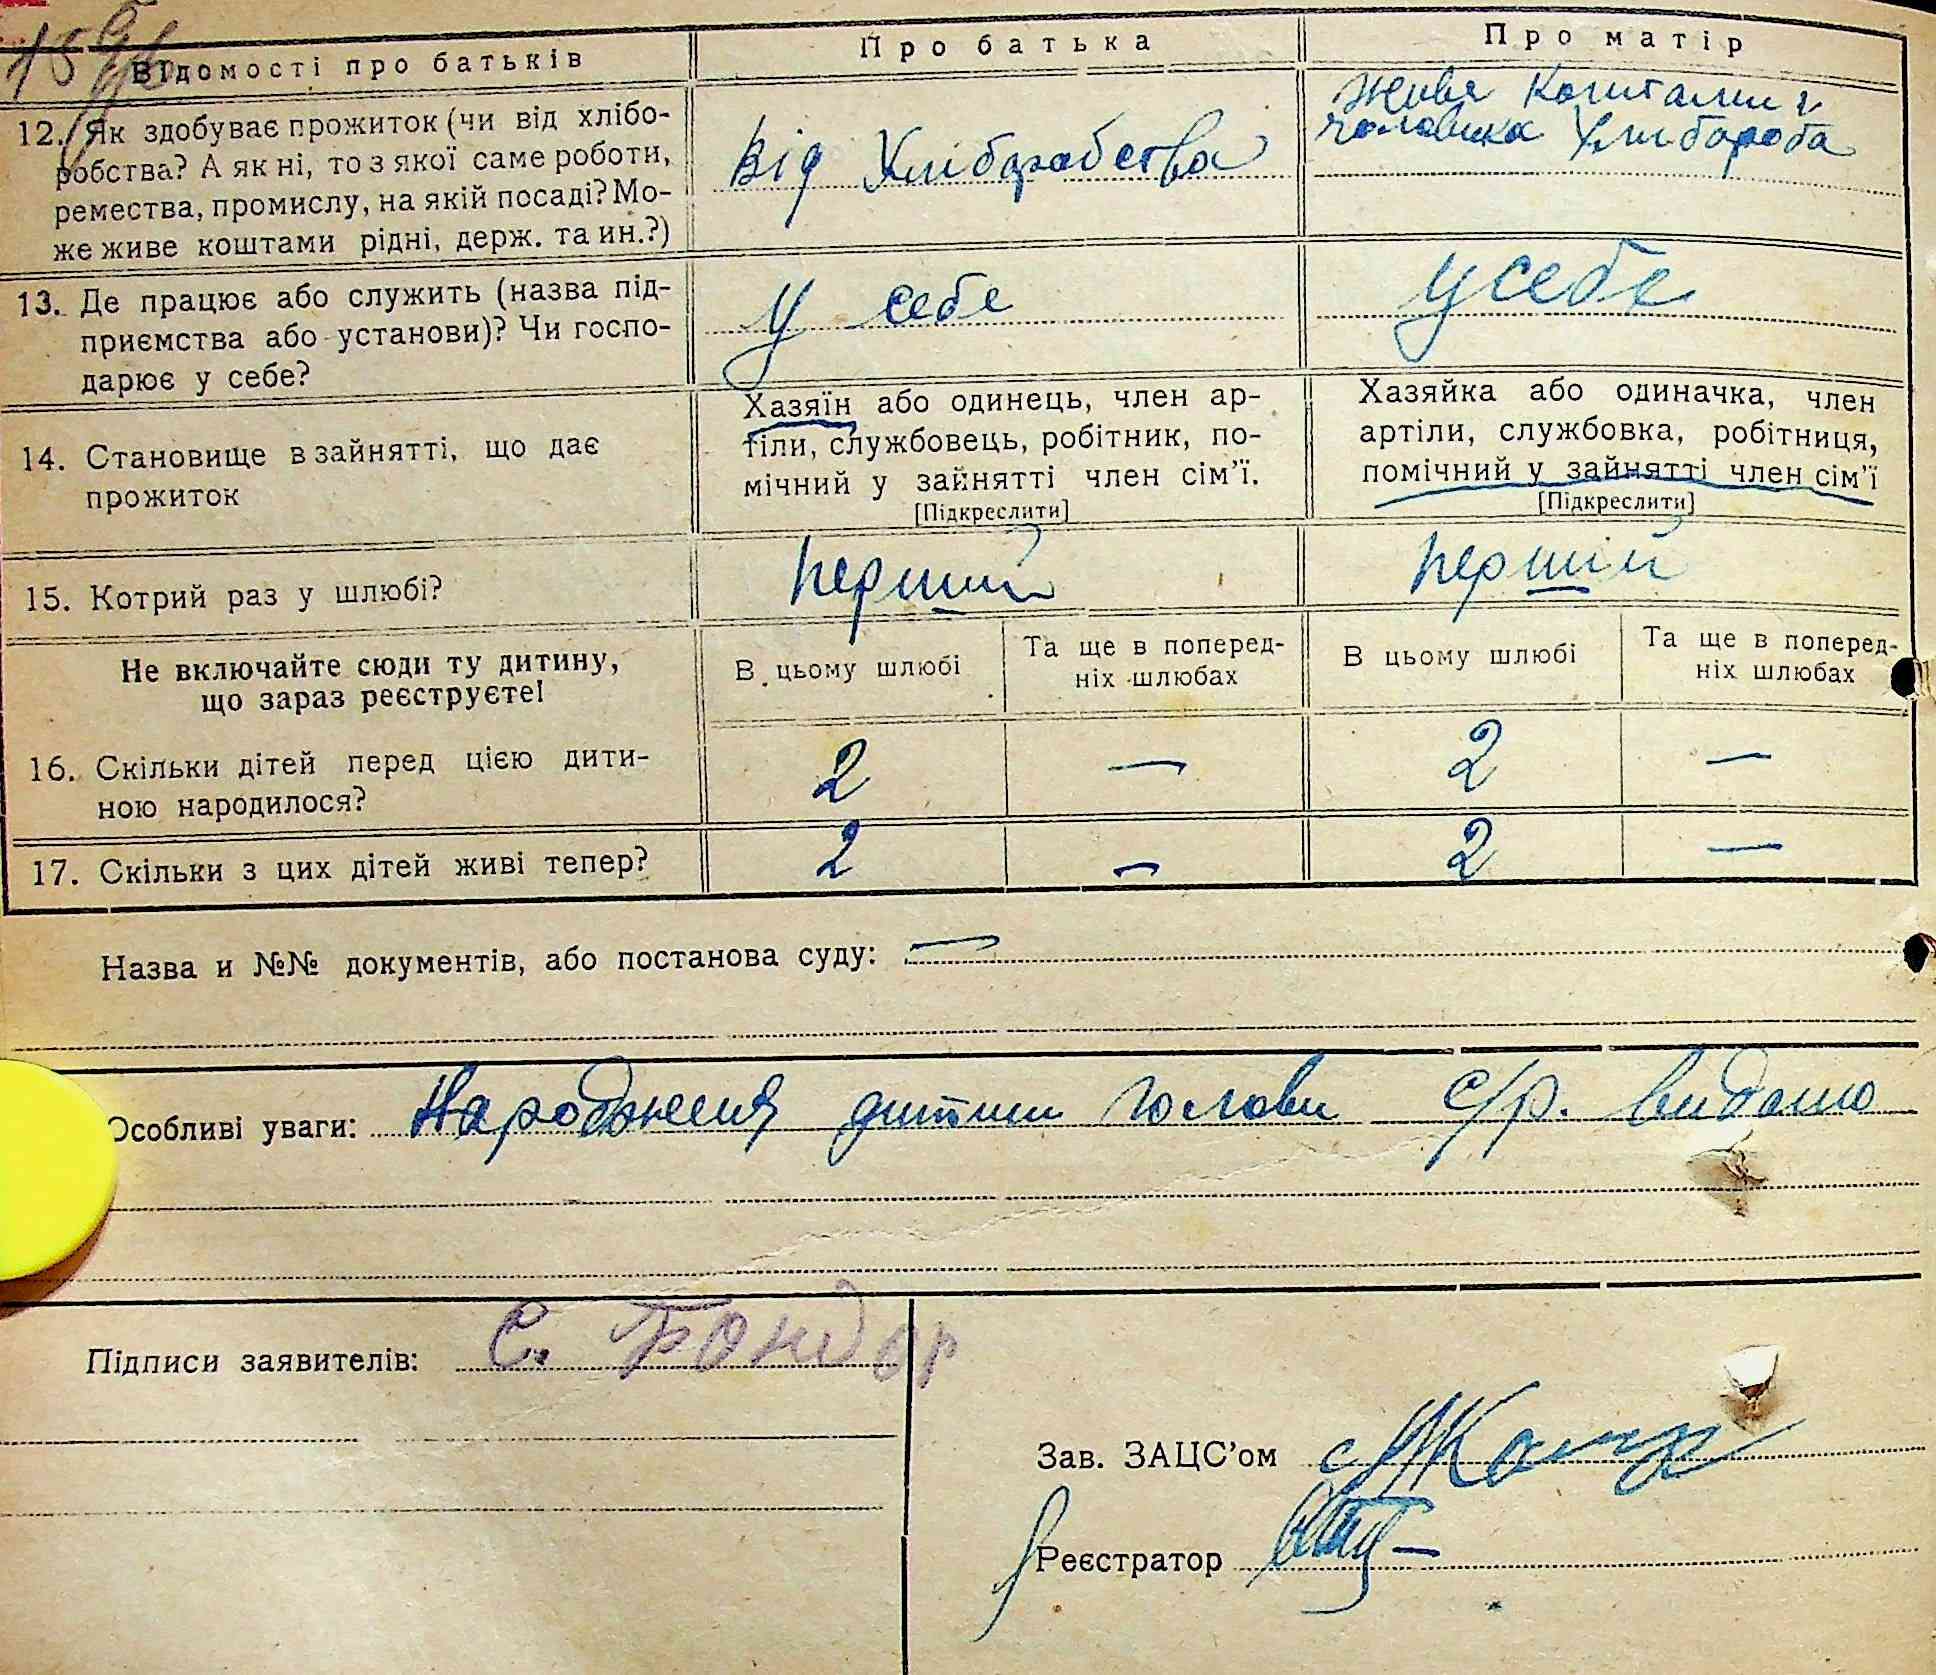 Відомості про батьків
Про батька
Про матір
12. Як здобуває прожиток (чи від хлібо-
робства? А як ні, то з якої саме роботи,
ремества, промислу, на якій посаді? Мо-
же живе коштами рідні, держ. та ин.?)
Від Хліборобства
живе Коштами
чоловіка Хлибороба
13. Де працює або служить (назва під-
приємства або установи)? Чи госпо-
дарює у себе?
у себе
у себе
14. Становище в зайнятті, що дає
прожиток
Хазяїн або одинець, член ар-
тіли, службовець, робітник, по-
мічний у зайнятті член сім'ї.
[Підкреслити]
Хазяйка або одиначка, член
артіли, службовка, робітниця,
помічний у зайнятті член сім'ї
[Підкреслити]
15. Котрий раз у шлюбі?
перший
перший
Не включайте сюди ту дитину,
що зараз реєструєте!
В цьому шлюбі
Та ще в поперед-
ніх шлюбах
В цьому шлюбі
Та ще в поперед-
ніх шлюбах
16. Скільки дітей перед цією дити-
ною народилося?
2 — 2 —
17. Скільки з цих дітей живі тепер?
2 — 2 —
Назва и №№ документів, або постанова суду: —
Особливі уваги: Народження дитини голови с/р. видано
Підписи заявителів: С. Бондар
Зав. ЗАЦС'ом
Реєстратор